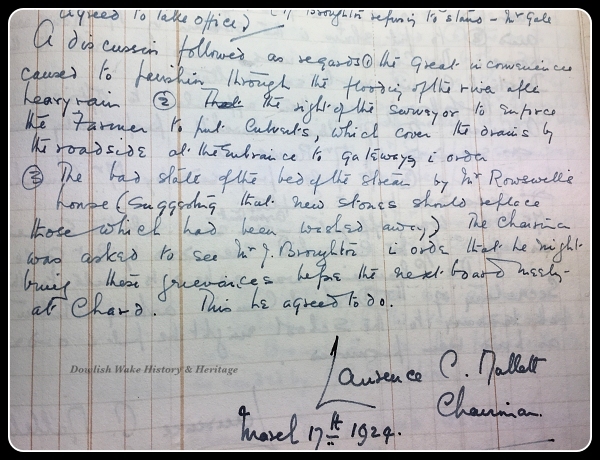 agreed to take office) (Mr Broughton refusing to stand – Mr Gale
A discussion followed as regards ① the Great inconvenience
caused to parish through the flooding of the river after
heavy rain ② That the right of the surveyor to enforce
the Farmer to put Culverts, which cover the drains by
the roadside at the Entrance to gateways in order
③ The bad state of the bed of the stream by Mr Rowswell's
house (suggesting that new stones should replace
those which had been washed away) The Chairman
was asked to see Mr J. Broughton in order that he might
bring these grievances before the next board meeting
at Chard. This he agreed to do.
Dowlish Wake History & Heritage
Laurence C. Mallett
Chairman.
March 17th 1924.